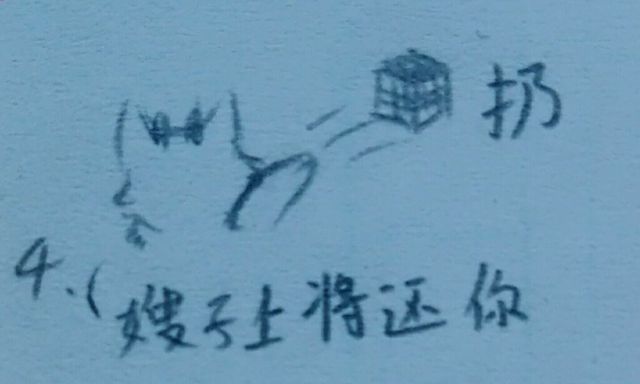 扔
4.(嫂子上将还你